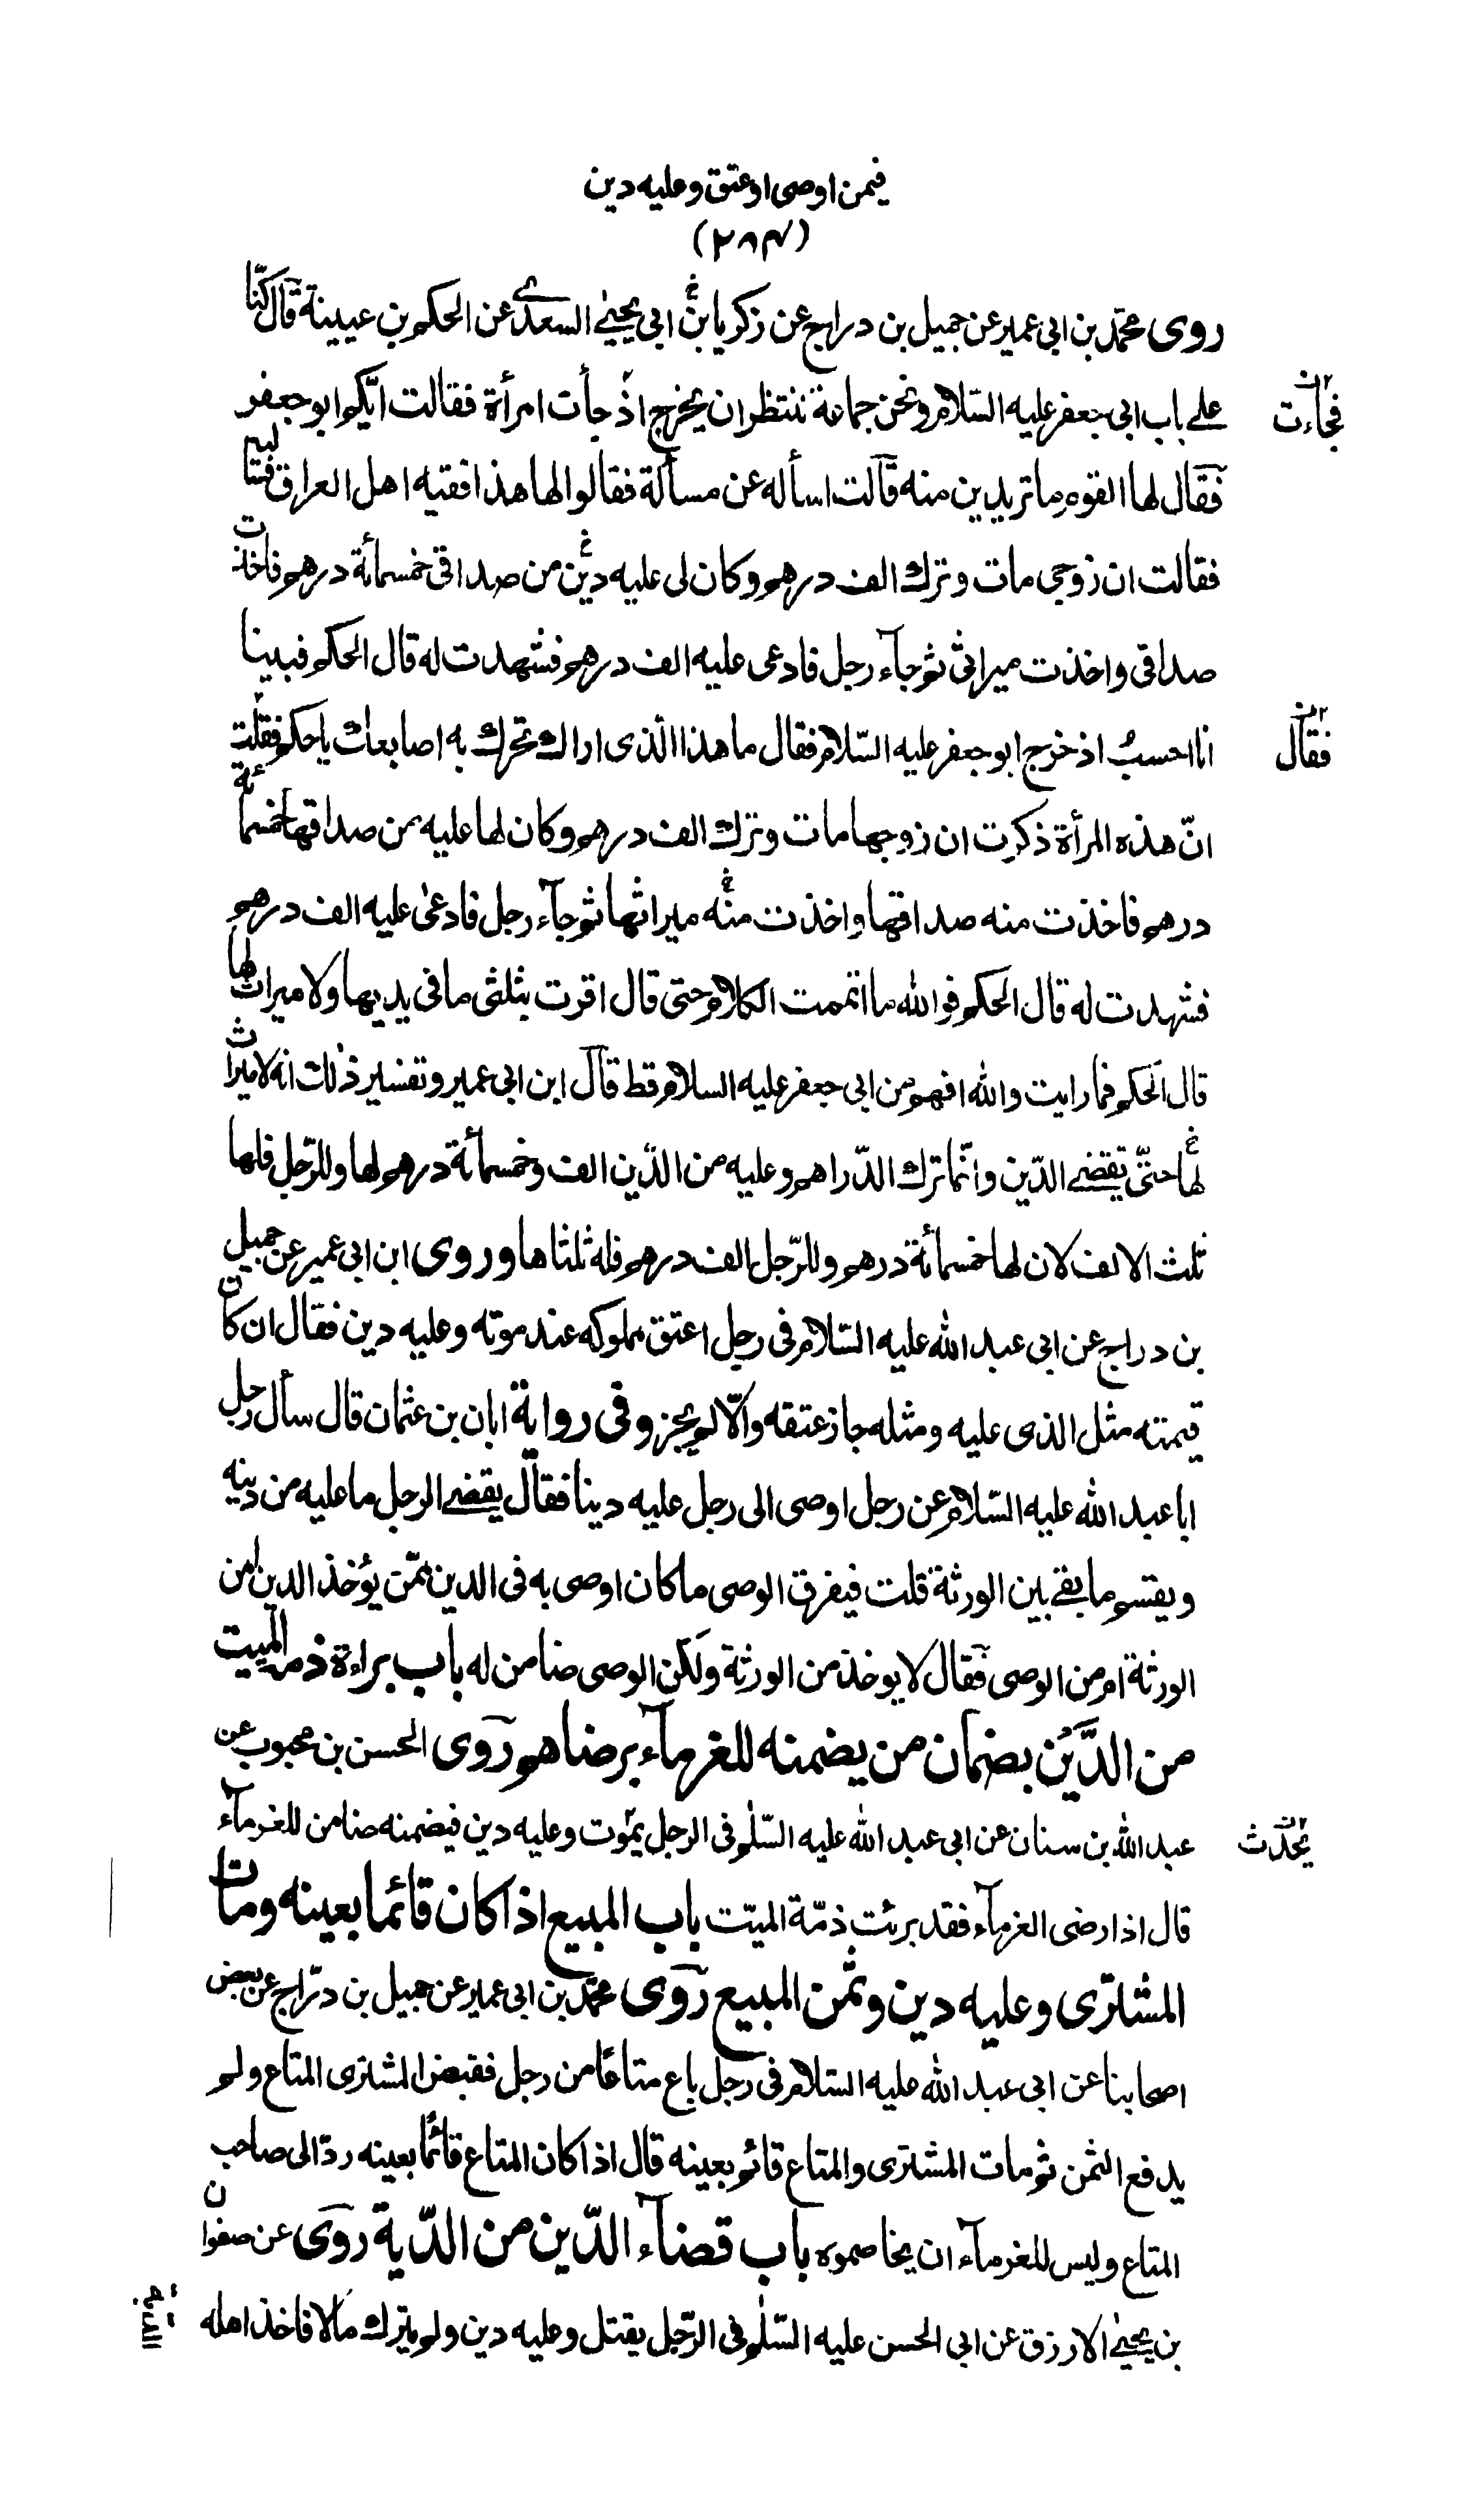 فيمن اوصى او عتق وعليه دين
(٢٨٣)
روى محمّد بن ابى عمير عن جميل بن دراج عن زكريا بن ابى يحيىٰ السعدى عن الحكم بن عيينة قال كنّا
على باب ابى جعفر عليه السّلام ونحن جماعة ننتظر ان يخرج اذ جأت امرأة فقالت ايّكم ابو جعفر
فجاءت
فقال لها القوم ما تريدين منه قالت اسأله عن مسألة فقالوا لها هذا فقيه اهل العراق فسليه
فقالت ان زوجى مات وترك الف درهم وكان لى عليه دين من صداقى خمسمائة درهم فاخذت
صداقى واخذت ميراثى ثم جآء رجل فادعى عليه الف درهم فشهدت له قال الحكم فبينا
انا احسبُ اذ خرج ابو جعفر عليه السّلام فقال ما هذا الذى اراك تحرك به اصابعك يا حكم فقلت
فقال
انّ هذه المرأة ذكرت ان زوجها مات وترك الف درهم وكان لها عليه من صداقها خمسمائة
درهم فاخذت منه صداقها واخذت منه ميراثها ثم جآء رجل فادعىٰ عليه الف درهم
فشهدت له قال الحكم فوالله ما اتممت الكلام حتى قال اقرت بثلثى ما فى يديها ولا ميراث لها
قال الحكم فما رايت والله افهم من ابى جعفر عليه السلام قط قال ابن ابى عمير وتفسير ذلك انه لا ميراث
لها حتىّ يقضى الدّين وانّما ترك الف درهم وعليه من الدّين الف وخمسمائة درهم لها وللرّجل فلها
ثلث الالف لان لها خمسمائة درهم وللرّجل الف درهم فله ثلثاها وروى ابن ابى عمير عن جميل
بن دراج عن ابى عبد الله عليه السّلام فى رجل اعتق مملوكه عند موته وعليه دين فقال ان كان
قيمته مثل الذى عليه ومثله جاز عتقه والّا لم يجز وفى رواية ابان بن عثمان قال سأل رجل
ابا عبد الله عليه السّلام عن رجل اوصى الى رجل عليه دينا فقال يقضى الرجل ما عليه من دينه
ويقسم ما بقى بين الورثة قلت فيفرق الوصى ما كان اوصى به فى الدين ممّن يؤخذ الدين امن
الورثة ام من الوصى فقال لا يوخذ من الورثة ولكن الوصى ضامن له باب براءة ذمة الميت
من الدَّيْن بضمان من يضمنه للغرمآء برضاهم روى الحسن بن محبوب عن
عبد الله بن سنان عن ابى عبد الله عليه السّلم فى الرجل يموت وعليه دين فيضمنه ضامن للغرمآء
قال اذا رضى الغرمآء فقد برئت ذمّة الميّت باب المبيع اذا كان قائما بعينه ومات
المشترى وعليه دين وثمن المبيع روى محمّد بن ابى عمير عن جميل بن درّاج عن بعض
اصحابنا عن ابى عبد الله عليه السّلام فى رجل باع متاعًا من رجل فقبض المشترى المتاع ولم
يدفع الثمن ثم مات المشترى والمتاع قائم بعينه قال اذا كان المتاع قائمًا بعينه ردّ الى صاحب
المتاع وليس للغرمآء ان يخاصموه باب قضآء الدّين من الدّية روى عن صفوان
بن يحيىٰ الازرق عن ابى الحسن عليه السّلم فى الرّجل يقتل وعليه دين ولم يترك مالا فاخذ اهله